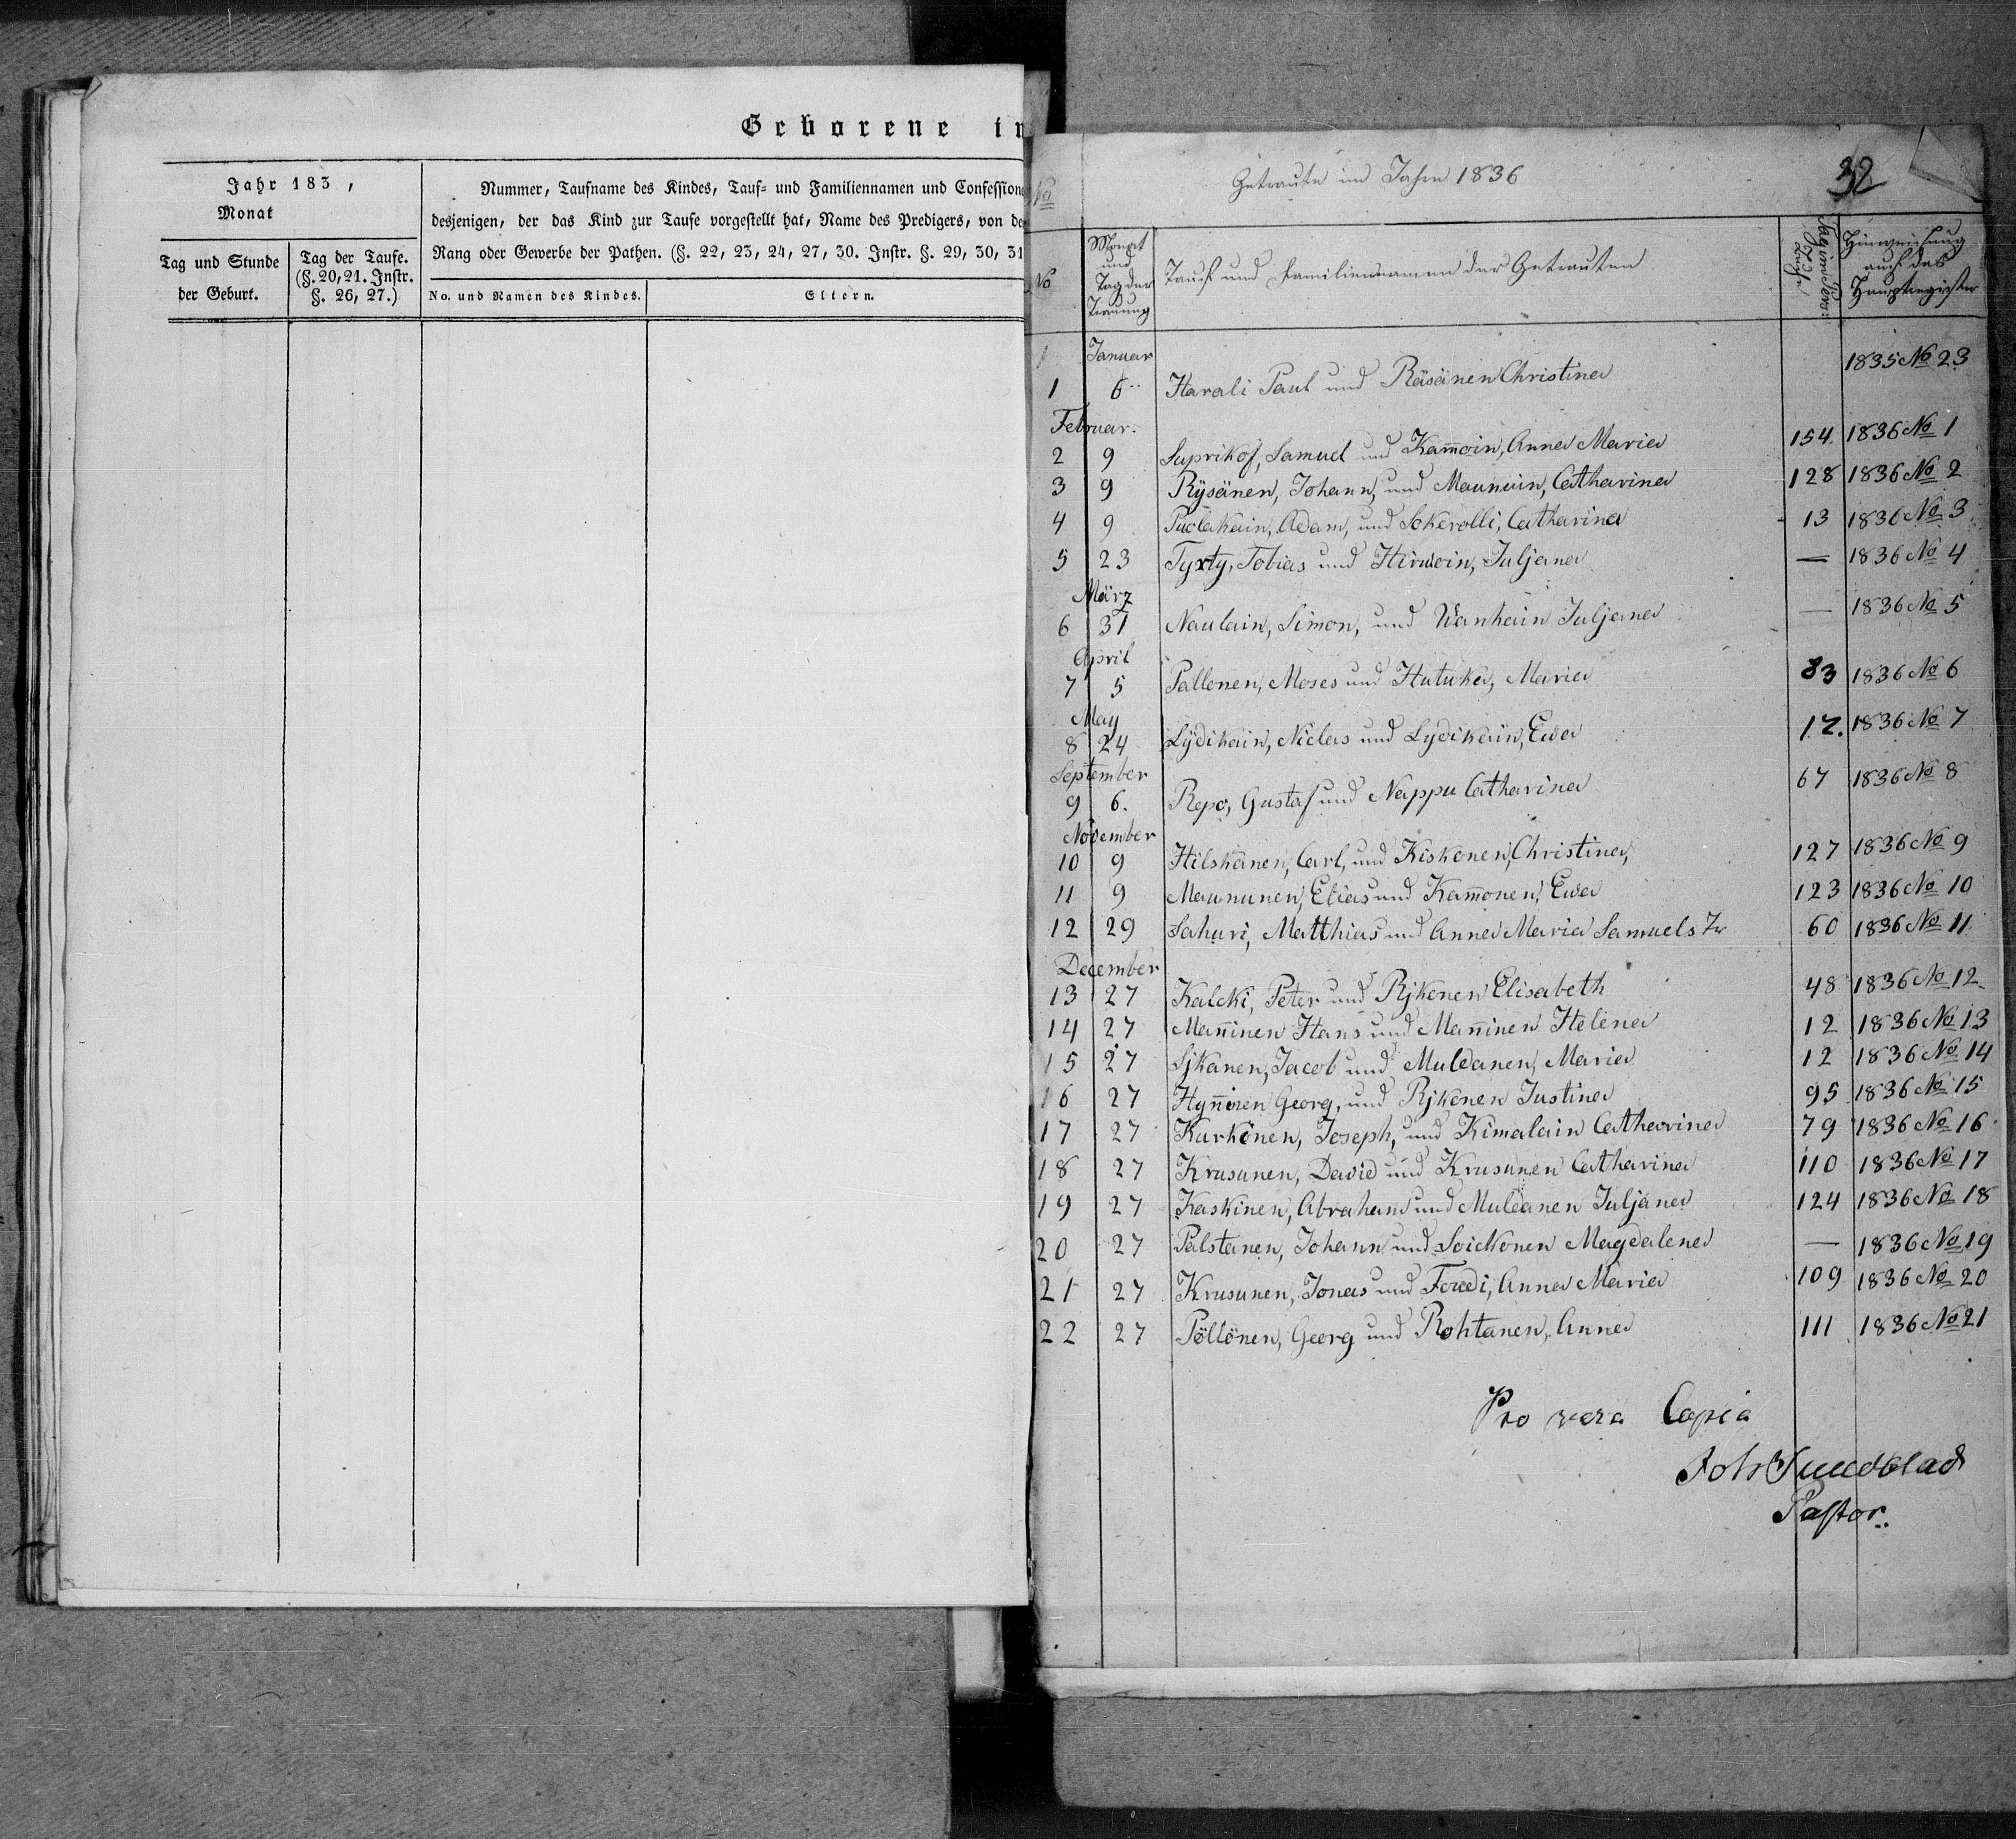 Geborene in
Jahr 183 ,
Monat
Tag und Stunde
der Geburt.
Tag der Taufe.
(§. 20, 21. Instr.
§. 26, 27.)
Nummer, Taufname des Kindes, Tauf= und Familiennamen und Confession
desjenigen, der das Kind zur Taufe vorgestellt hat, Name des Predigers, von de
Rang oder Gewerbe der Pathen. (§. 22, 23, 24, 27, 30. Instr. §. 29, 30, 31
No. und Namen des Kindes.
Eltern.
No
Getraute im Jahre 1836
32
No
Monat
und
Tag der
Trauung
Tauf und Familiennamen der Getrauten
Hinweisung
auf das
Hauptregister
Januar
1 6 Harali Paul und Räsänen Christina 1835 No 23
Februar.
2 9 Suprikof, Samuel und Kam̄oin, Anna Maria 154 1836 No 1
3 9 Rÿsänen, Johann, und Maunuin, Catharina 128 1836 No 2
4 9 Puolakain, Adam, und Sokerolli, Catharina 13 1836 No 3
5 23 Tyxty, Tobias und Hirwoin, Juljana — 1836 No 4
März
6 31 Naulain, Simon, und Wanhain Juljana — 1836 No 5
April
7 5 Pallonen, Moses und Hutuka, Maria 83 1836 No 6
May
8 24 Lÿdikäin, Niclas und Lydikäin, Ewa 12. 1836 No 7
September
9 6. Repo, Gustaf und Nappu Catharina 67 1836 No 8
November
10 9 Hilskanen, Carl, und Kiskonen, Christina, 127 1836 No 9
11 9 Maununen, Elias und Kam̄onen, Ewa 123 1836 No 10
12 29 Sahuri, Matthias und Anna Maria Samuels Tr 60 1836 No 11
December
13 27 Kalcki, Peter und Rjkonen Elisabeth 48 1836 No 12
14 27 Man̄inen Hans und Man̄inen Helena 12 1836 No 13
15 27 Sjkanen, Jacob und Muldanen, Maria 12 1836 No 14
16 27 Hyn̄inen Georg, und Rjkonen Justina 95 1836 No 15
17 27 Kurkinen, Joseph, und Kimalain Catharina 79 1836 No 16
18 27 Krusunen, David und Krusunen Catharina 110 1836 No 17
19 27 Kaskinen, Abraham und Muldanen Juljana 124 1836 No 18
20 27 Palstanen, Johann und Soickonen Magdalena — 1836 No 19
21 27 Krusunen, Jonas und Foudi, Anna Maria 109 1836 No 20
22 27 Pöllönen, Georg und Rohtanen, Anna 111 1836 No 21
Pro vera Copia
Joh Sundblad
Pastor.